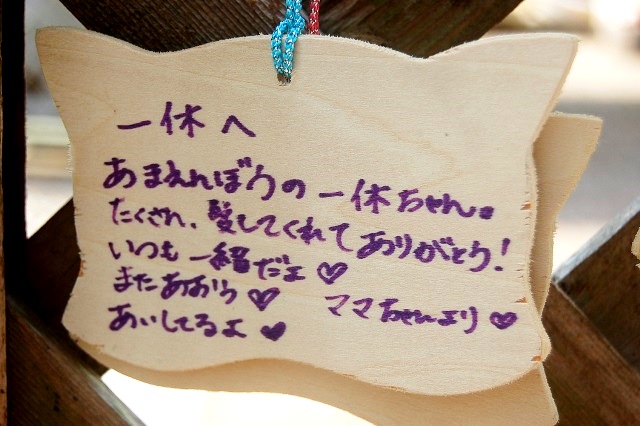 一休へ
あまえんぼうの一休ちゃん。
たくさん、愛してくれてありがとう!
いつも一緒だよ♡
またあおう♡ ママちゃんより♡
あいしてるよ♥